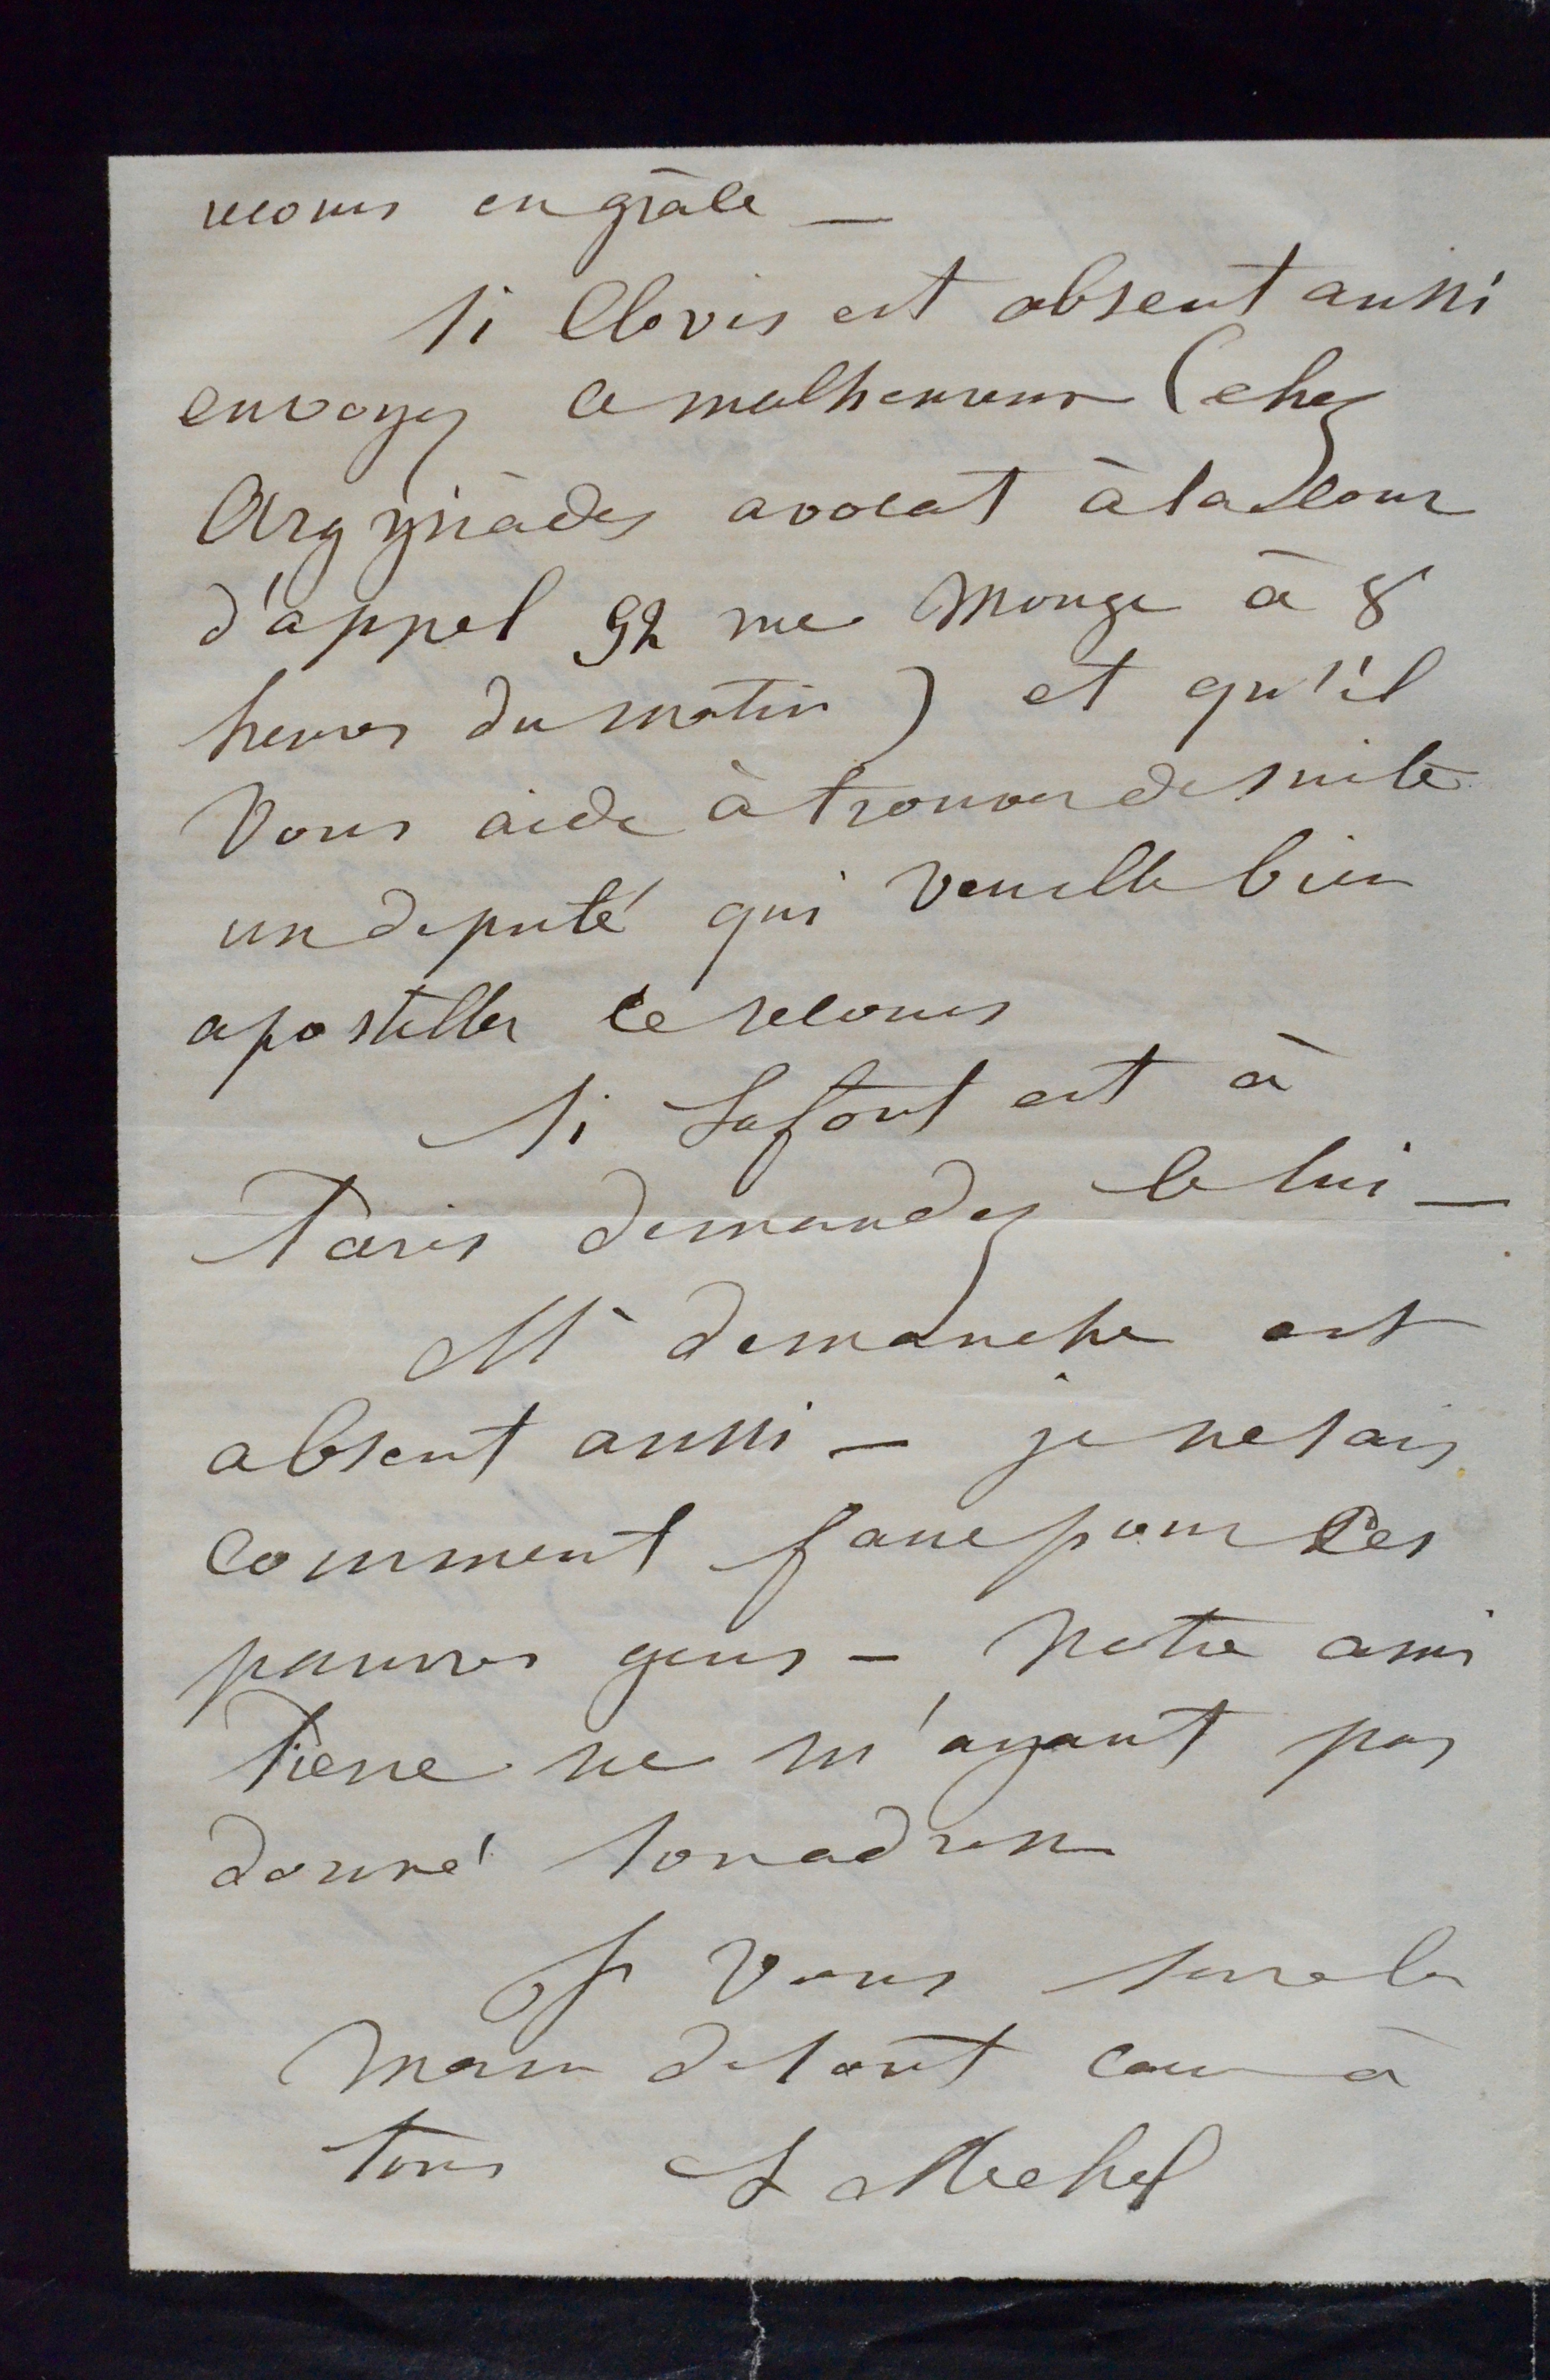 recours en grâce —
si Clovis est absent aussi
envoyez ce malheureux (chez
Argyriadès avocat à la cour
d'appel 92 rue Monge à 8
heures du matin) et qu'il
vous aide à trouver de suite
un député qui veuille bien
apostiller le recours
si Lafont est à
Paris demandez le lui —
Mr demanche est
absent aussi — je ne sais
comment faire pour ces
pauvres gens — notre ami
Pierre ne m'ayant pas
donné son adresse
Je vous serre la
main de tout cœur à
tous L Michel